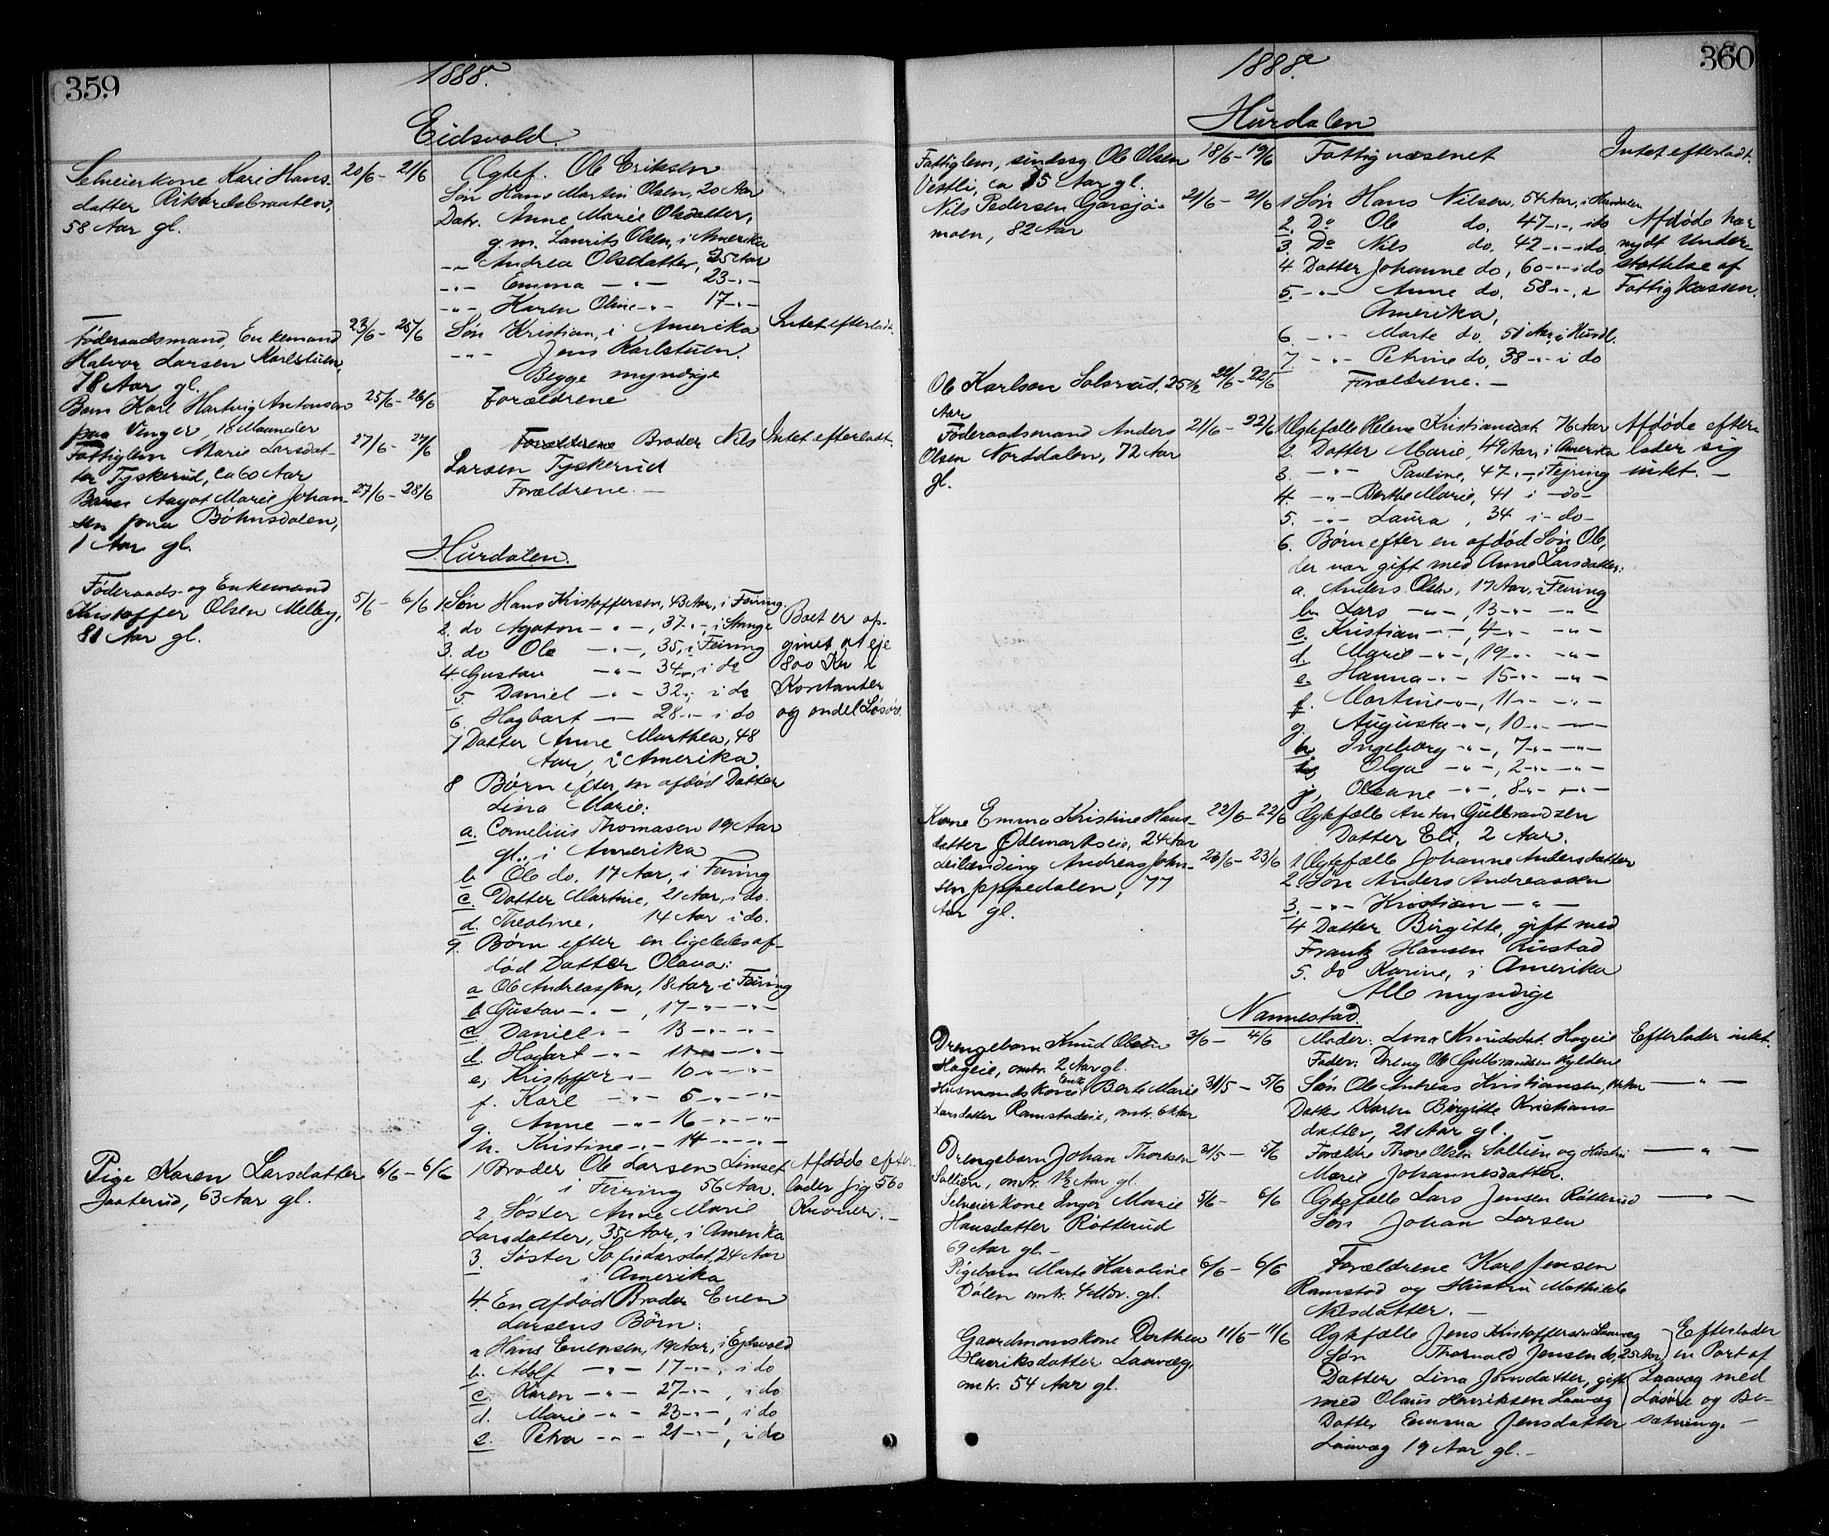 359
1888.
Eidsvold.
Selveierkone Kari Hans-
datter
58 Aar gl.
20/6 - 21/6
Ægtef. Ole Eriksen
Søn Hans Martin Olsen, 20 Aar
Datr. Anne Marie Olsdatter,
g. m. Laurits Olsen, i Amerika
-"- Andrea Olsdatter, 25 Aar
-"- Emma -"- 23 -"-
-"- Karen Oline -"- 17 -"-
Føderaadsmand, Enkemand
Halvor Larsen Karlstuen,
78 Aar gl.
23/6 - 25/6
Søn Kristian, i Amerika
-"- Jens Karlstuen.
Begge myndige
Intet efterladt.
Barn Karl Hartvig Antonsen
paa Vinger, 18 Maaneder
25/6 - 26/6
Forældrene
Fattiglem Marie Larsdat-
ter Tyskerud, ca 60 Aar
27/6 - 27/6
Forældrene Broder Nils
Larsen Tyskerud
Intet efterladt.
Barn Aagot Marie Johan-
sen paa Bøhnsdalen,
1 Aar gl.
27/6 - 28/6
Forældrene. -
Hurdalen.
Føderaads- og Enkemand
Kristoffer Olsen Melby,
81 Aar gl.
5/6 - 6/6
1 Søn Hans Kristoffersen, 43 Aar, i Feiring
2. do Agaton -"-, 37 -"- i Stange
3. do Ole -"-, 35, i Feiring
4. Gustav -"- 34 -"-, i do
5. Daniel -"- 32 -"- i do
6. Hagbart -"- 28 -"- i do
7 Datter Anne Marthea, 48
Aar, i Amerika.
8 Børn efter en afdød Datter
Lina Marie:
a. Cornelius Thomasen 19 Aar
gl., i Amerika
b. Ole do, 17 Aar, i Feiring
c. Datter Martine, 21 Aar, i do.
d. Theoline, 14 Aar i do.
9. Børn efter en ligeledes af-
død Datter Olava:
a Ole Andreassen, 18 Aar i Feiring
b. Gustav -"-, 17 -"- -"-
c. Daniel -"- 13 -"- -"-
d. Hagbart -"- 11 -"- -"-
e, Kristoffer -"- 10 -"- -"-
f. Karl -"- 5 -"- -"-
g. Anne -"- 16 -"- -"-
h. Kristine -"- 14 -"- -"-
Boet er op-
givet at eje
800 Kr i
Kontanter
og endel Løsøre
Pige Karen Larsdatter
Jaaterud, 63 Aar gl.
6/6 - 6/6
1 Broder Ole Larsen Limset
i Feiring 56 Aar.
2. Søster Anne Marie
Larsdatter, 35 Aar, i Amerika
3. Søster Sofie Larsdat, 24 Aar
i Amerika
4. En afdød Broder Even
Larsens Børn:
a Hans Evensen, 19 Aar, i Ejdsvold
b. Adolf -"- 17 -"-, i do
c. Karen -"- 27 -"-, i do
d. Marie -"- 23 -"-, i do
e. Petra -"- 21 -"-, i do
Afdøde efter-
lader sig 560
Kroner. -
360
1888.
Hurdalen
Fattiglem, sindssg Ole Olsen
Vestli, ca 75 Aar gl.
18/6 - 19/6
Fattigvæsenet
Intet efterladt.
Nils Pedersen Garsjø-
moen, 82 Aar
21/6 - 21/6
1 Søn Hans Nilsen, 54 Aar, i Hurdalen
2. Do Ole do, 47 -"-, i do
3. Do Nils do, 42 -"- i do
4 Datter Johanne do, 60 -"- i do
5. -"- Anne do, 58 -"-, i
Amerika,
6. -"- Marte do, 51 Aar, i Hurdl.
7 -"- Petrine do, 38 -"- i do
Afdøde har
nydt Under-
støttelse af
Fattigkassen.
Ole Karlsen Solsrud, 25 1/2
Aar
22/6 - 22/6
Forældrene. -
Føderaadsmand Anders
Olsen Norddalen, 72 Aar
gl.
21/6 - 22/6
1 Ægtefælle Helene Kristiansdat. 76 Aar
2. Datter Marie, 49 Aar, i Amerika
3. -"- Pauline, 47 -"-, i Fejring
4. -"- Berthe Marie, 41 i -do-
5. -"- Laura, 34 i -do-
6. Børn efter en afdød Søn Ole,
der var gift med Anne Larsdatter:
a. Anders Olsen, 17 Aar, i Feiring
b. Lars -"-, 13 -"- -"-
c. Kristian -"-, 4 -"- -"-
d. Marie -"-, 19 -"- -"-
e. Hanna -"- 15 -"- -"-
f. Martine -"-, 11 -"- -"-
g. Augusta -"-, 10 -"- -"-
h Ingeborg -"-, 7 -"- -"-
i Olga -"-, 2 -"- -"-
j, Oleane -"-, 8 -"- -"-
Afdøde efter-
lader sig
intet. -
Kone Emma Kristine Hans-
datter Ødemarkseie, 24 Aar
22/6 - 22/6
Ægtefælle Anton Gulbrandsen
Datter Eli, 2 Aar.
Leilænding Andreas John-
sen Jeppedalen, 77
Aar gl.
23/6 - 23/6
1 Ægtefælle Johanne Andersdatter
2. Søn Anders Andreassen
3. -"- Kristian -"-
4 Datter Birgitte, gift med
Frantz Hansen Rustad
5. do Karine, i Amerika
Alle myndige
Nannestad
Drengebarn Knud Olsen
Hageie, omtr. 2 Aar gl.
3/6 - 4/6
Moder: Lina Knudsdat. Hageie
Fader: Dreng Ole Gulbrandsen
Efterlader intet.
Husmandskone Enke Berte Marie
Larsdatter Ramstadeie, omtr. 61 Aar
31/5 - 5/6
Søn Ole Andreas Kristiansen,
Datter Karen Birgitte Kristians-
datter, 21 Aar gl.
- " -
Drengebarn Johan Thoresen
Sollien, omtr. 1 1/2 Aar gl.
31/5 - 5/6
Forældre Thore Olsen Sollien og Hustru
Marie Johannesdatter.
- " -
Selveierkone Inger Marie
Hansdatter Røtterud
69 Aar gl. -
5/6 - 6/6
Ægtefælle Lars Jensen Røtterud
Søn Johan Larsen
- " -
Pigebarn Marte Karoline
Dølen omtr. 4 Mdr. gl.
6/6 - 6/6
Forældrene Karl Jensen
Ramstad og Hustru Mathilde
Nilsdatter. -
Gaardmandskone Dorthea
Henriksdatter Laavæg,
omtr. 54 Aar gl.
11/6 - 11/6
Ægtefælle Jens Kristoffersen Laavæg
Søn Thorvald Jensen do, 25 Aar,
Datter Lina Jensdatter, gift
med Olaus Henriksen Laavæg
Datter Emma Jensdatter
Laavæg 19 Aar gl. -
Efterlader
en Part af
Laavæg med
Løsøre og Be-
sætning. -